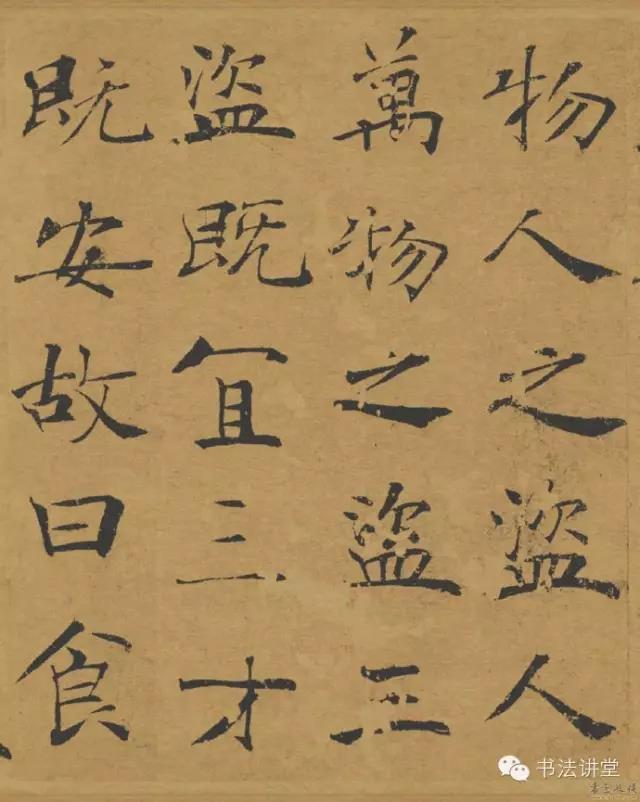 物人之盜人
萬物之盜三
盜既宜三才
既安故曰食
书法讲堂